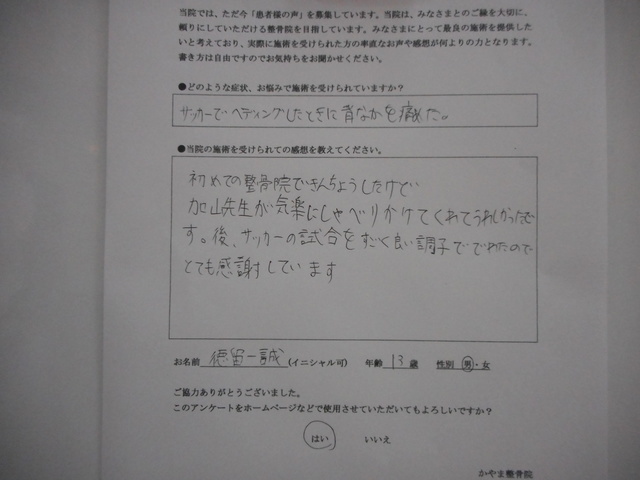 当院では、ただ今「患者様の声」を募集しています。当院は、みなさまとのご縁を大切に、
頼りにしていただける整骨院を目指しています。みなさまにとって最良の施術を提供した
いと考えており、実際に施術を受けられた方の率直なお声や感想が何よりの力となります。
書き方は自由ですのでお気持ちをお聞かせください。
●どのような症状、お悩みで施術を受けられていますか？
サッカーでヘディングしたときに背なかを痛めた。
●当院の施術を受けられての感想を教えてください。
初めての整骨院できんちょうしたけど
加山先生が気楽にしゃべりかけてくれてうれしかったで
す。後、サッカーの試合をすごく良い調子ででれたので
とても感謝しています
お名前 徳留一誠 (イニシャル可) 年齢 13歳 性別 男・女
ご協力ありがとうございました。
このアンケートをホームページなどで使用させていただいてもよろしいですか？
はい いいえ
かやま整骨院